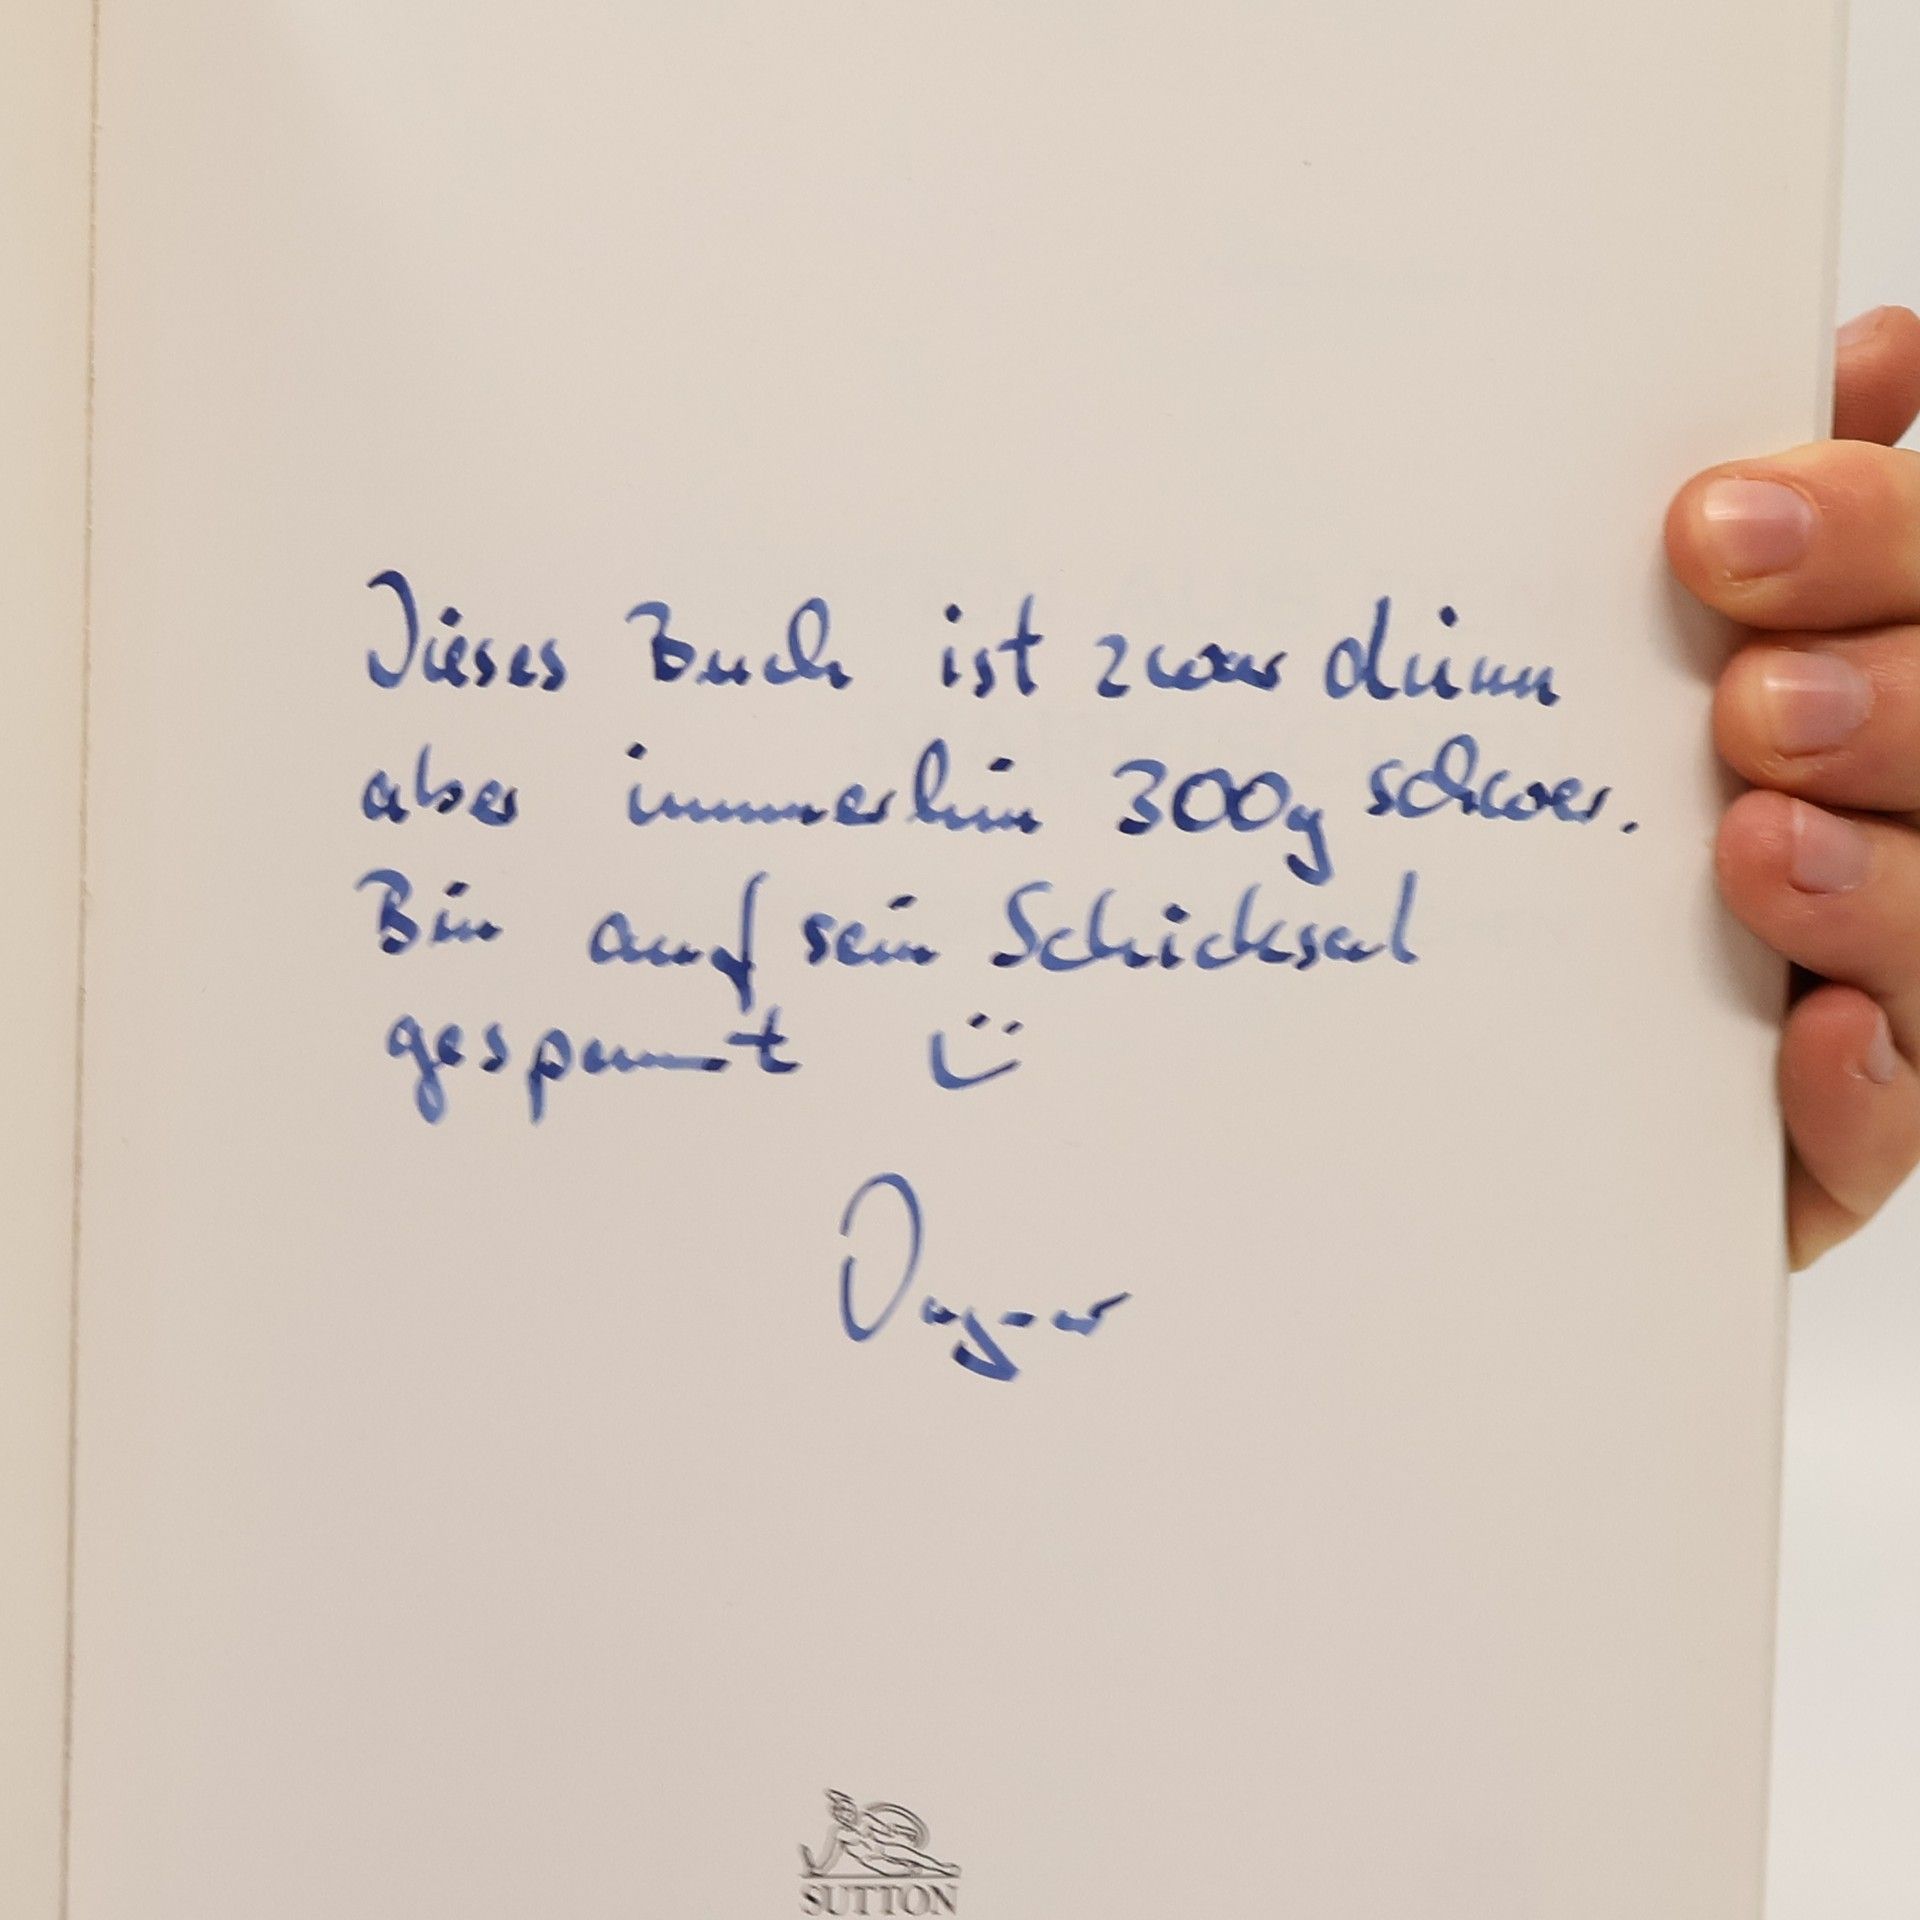 Dieses Buch ist zwar dünn
aber immerhin 300g schwer.
Bin auf sein Schicksal
gespannt Ü
Dagmar
SUTTON